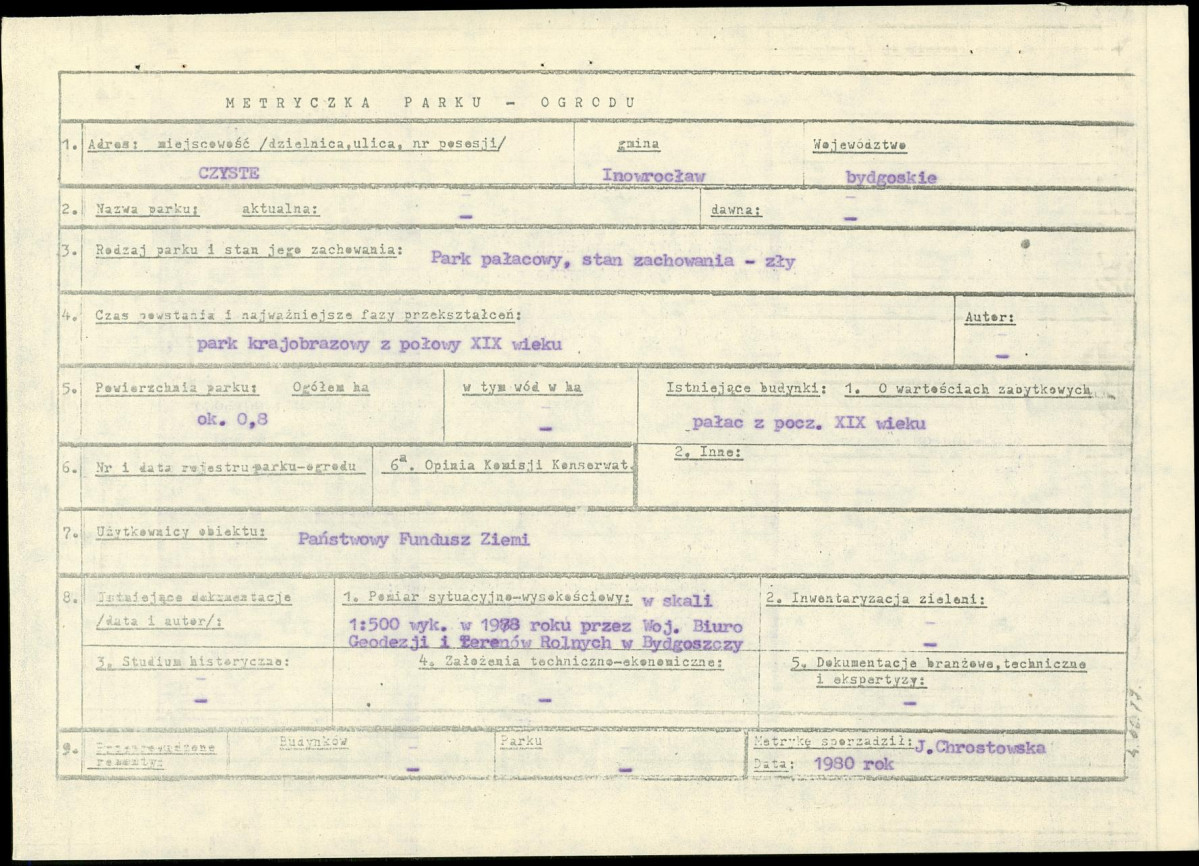 METRYCZKA PARKU - OGRODU
1. Adres: miejscowość /dzielnica,ulica, nr posesji/ gmina Województwo
CZYSTE Inowrocław bydgoskie
2. Nazwa parku: aktualna: - dawna: -
3. Rodzaj parku i stan jego zachowania: Park pałacowy, stan zachowania - zły
4. Czas powstania i najważniejsze fazy przekształceń: Autor:
park krajobrazowy z połowy XIX wieku -
5. Powierzchnia parku: Ogółem ha w tym wód w ha Istniejące budynki: 1. O wartościach zabytkowych
ok. 0,8 - pałac z pocz. XIX wieku
6. Nr i data rejestru parku-ogrodu 6a. Opinia Komisji Konserwat. 2. Inne:
7. Użytkownicy obiektu: Państwowy Fundusz Ziemi
8. Istniejące dokumentacje /data i autor/: 1. Pomiar sytuacyjno-wysokościowy: w skali 2. Inwentaryzacja zieleni:
1:500 wyk. w 1978 roku przez Woj. Biuro -
Geodezji i Terenów Rolnych w Bydgoszczy -
3. Studium historyczne: 4. Założenia techniczno-ekonomiczne: 5. Dokumentacje branżowe,techniczne
i ekspertyzy:
- - -
9. Przeprowadzone Budynków Parku Metrykę sporządził: J.Chrostowska
remonty: - - Data: 1980 rok